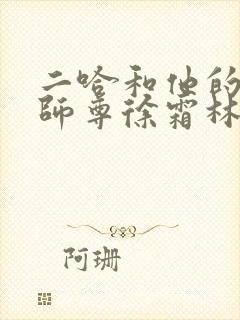 二哈和他的
師尊徐霜林
阿珊